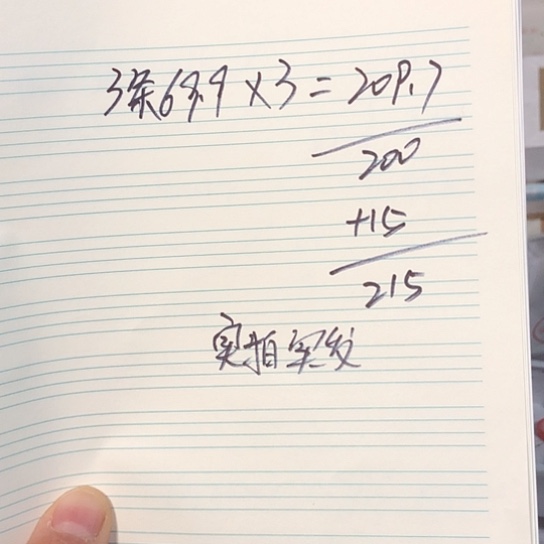 3条69.9×3=209.7
200
+15
215
实拍实发